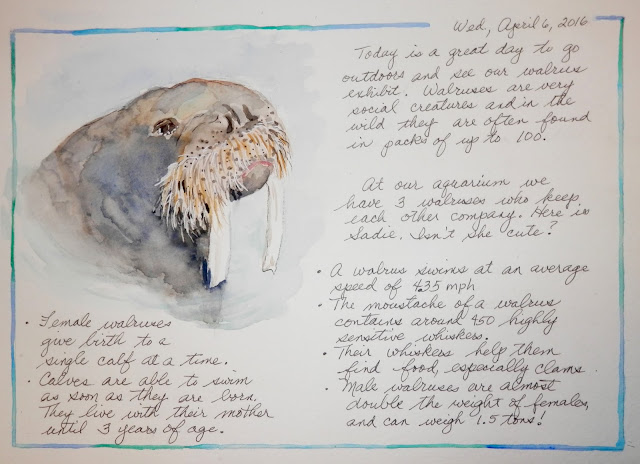 Wed, April 6, 2016
Today is a great day to go
outdoors and see our walrus
exhibit. Walruses are very
social creatures and in the
wild they are often found
in packs of up to 100.
At our aquarium we
have 3 walruses who keep
each other company. Here is
Sadie. Isn't she cute?
• A walrus swims at an average
speed of 4.35 mph
• The moustache of a walrus
contains around 450 highly
sensitive whiskers.
• Their whiskers help them
find food, especially clams
• Male walruses are almost
double the weight of females,
and can weigh 1.5 tons!
• Female walruses
give birth to a
single calf at a time.
• Calves are able to swim
as soon as they are born.
They live with their mother
until 3 years of age.